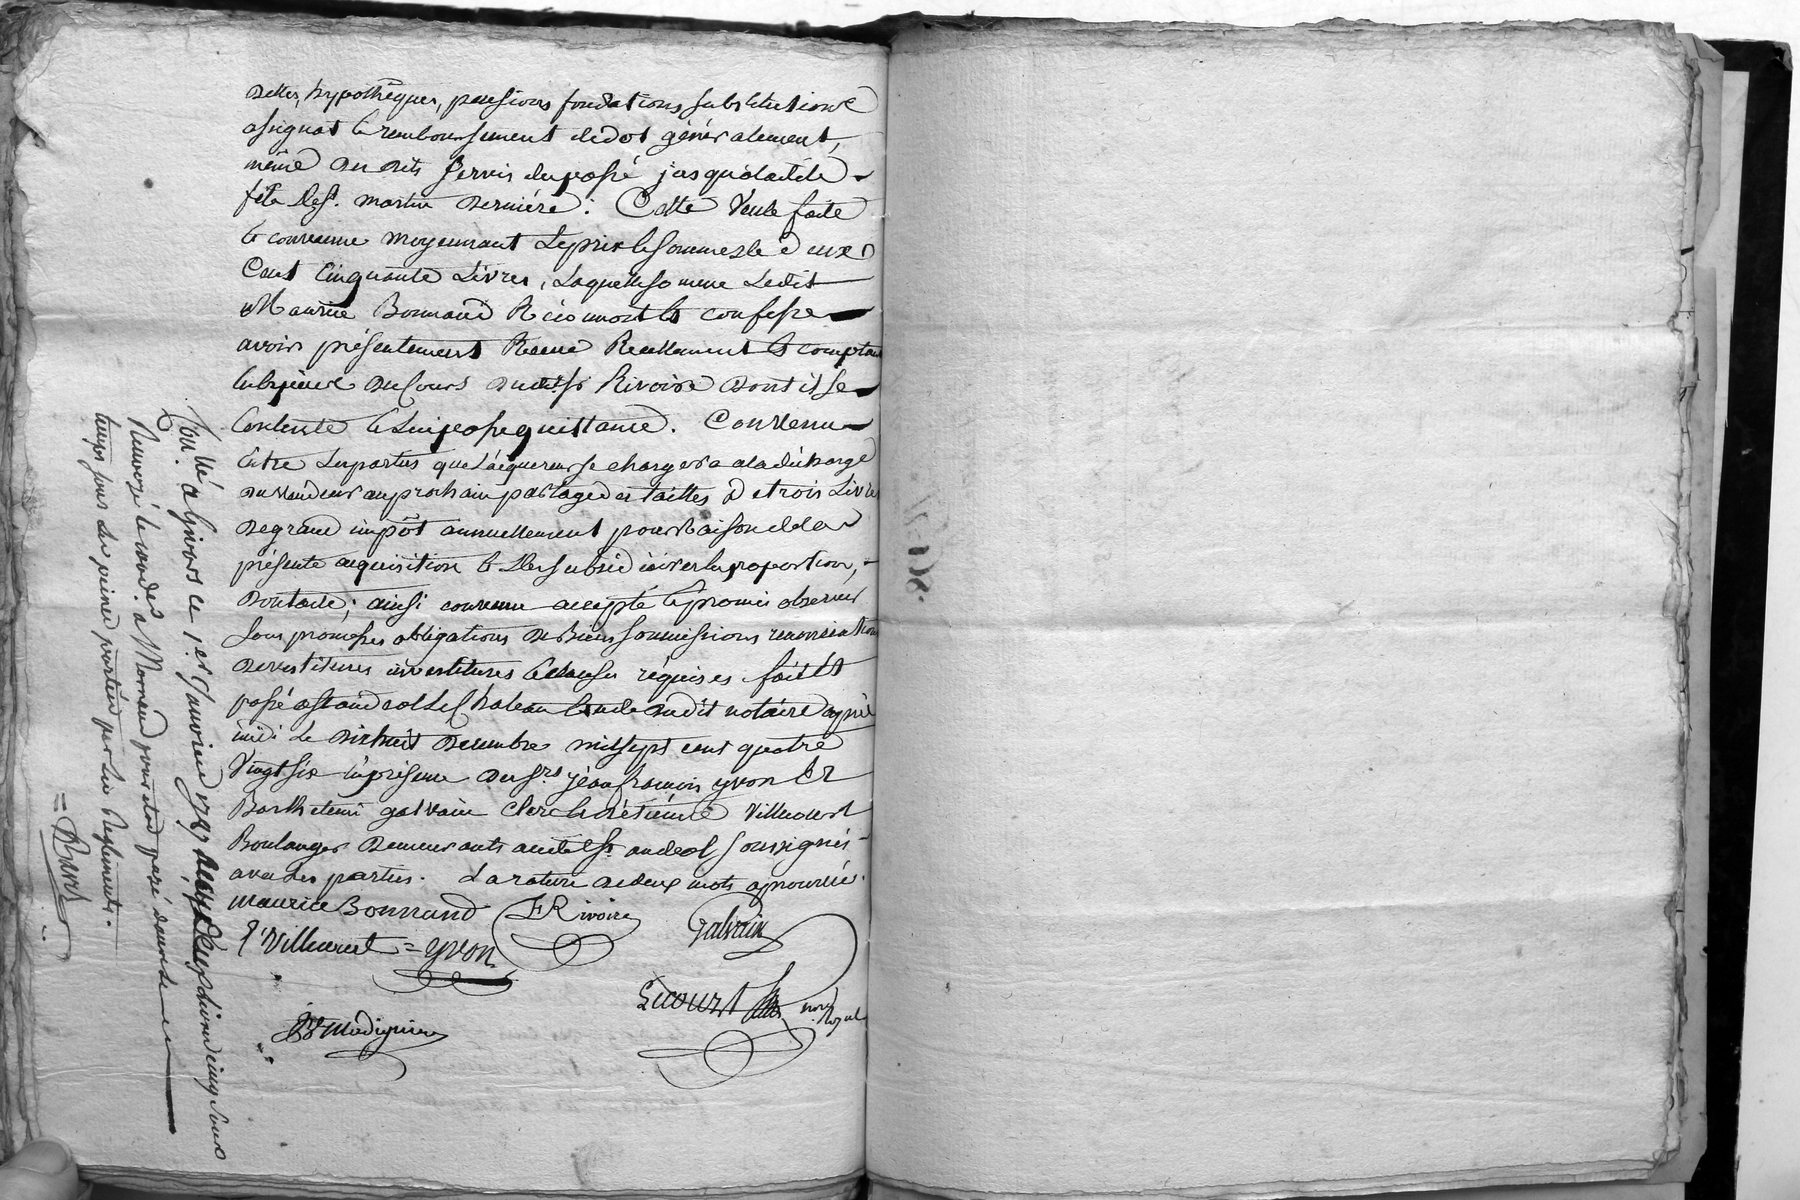 Dettes, hypothèques, pensions fondations substitutions
assignat & remboursement de dot généralement,
même des dits servis du passé jusqu'à ladite
fête de St. martin Dernière. Cette Vente faite
& convenue moyennant le prix & somme de deux
Cent Cinquante Livres, Laquelle somme Ledit
Maurice Bonnand Reconnoit & confesse
avoir présentement Receue Reellement & comptant
en espèces du Cours dudit sr Rivoire dont il se
Contente & Lui passe quittance. Convenu
Entre Les parties que L'acquereur se chargera a la décharge
du Vendeur au prochain partage des tailles de trois Livres
de grand impôt annuellement pour Raison de la
présente acquisition & des subsidiaires en proportion,
Dont acte; ainsi convenu accepté & promis observer
sous promesses obligations de Biens soumissions renonciations
devestitures investitures & clauses réquises fait &
passé a st andeol Le Chateau Etude dudit notaire après
midi Le Dix huit Decembre mil sept cent quatre
Vingt six en présence des Srs jean francois yvon &
Barthelemi galvain Clerc & d'étienne Villecourt
Boulanger Demeurants audit St. andeol soussignés
avec Les parties. La rature de deux mots approuvée.
maurice Bonnand F Rivoire Galvain
E Villecourt = yvon
Lecourt not. Royal
Con.llé a Givors ce 1.er Janvier 1787 Reçu dix sous
Renvoyé le cond. a Mornand pour etre payé dans le
temps sous les peines portées par les Reglements.